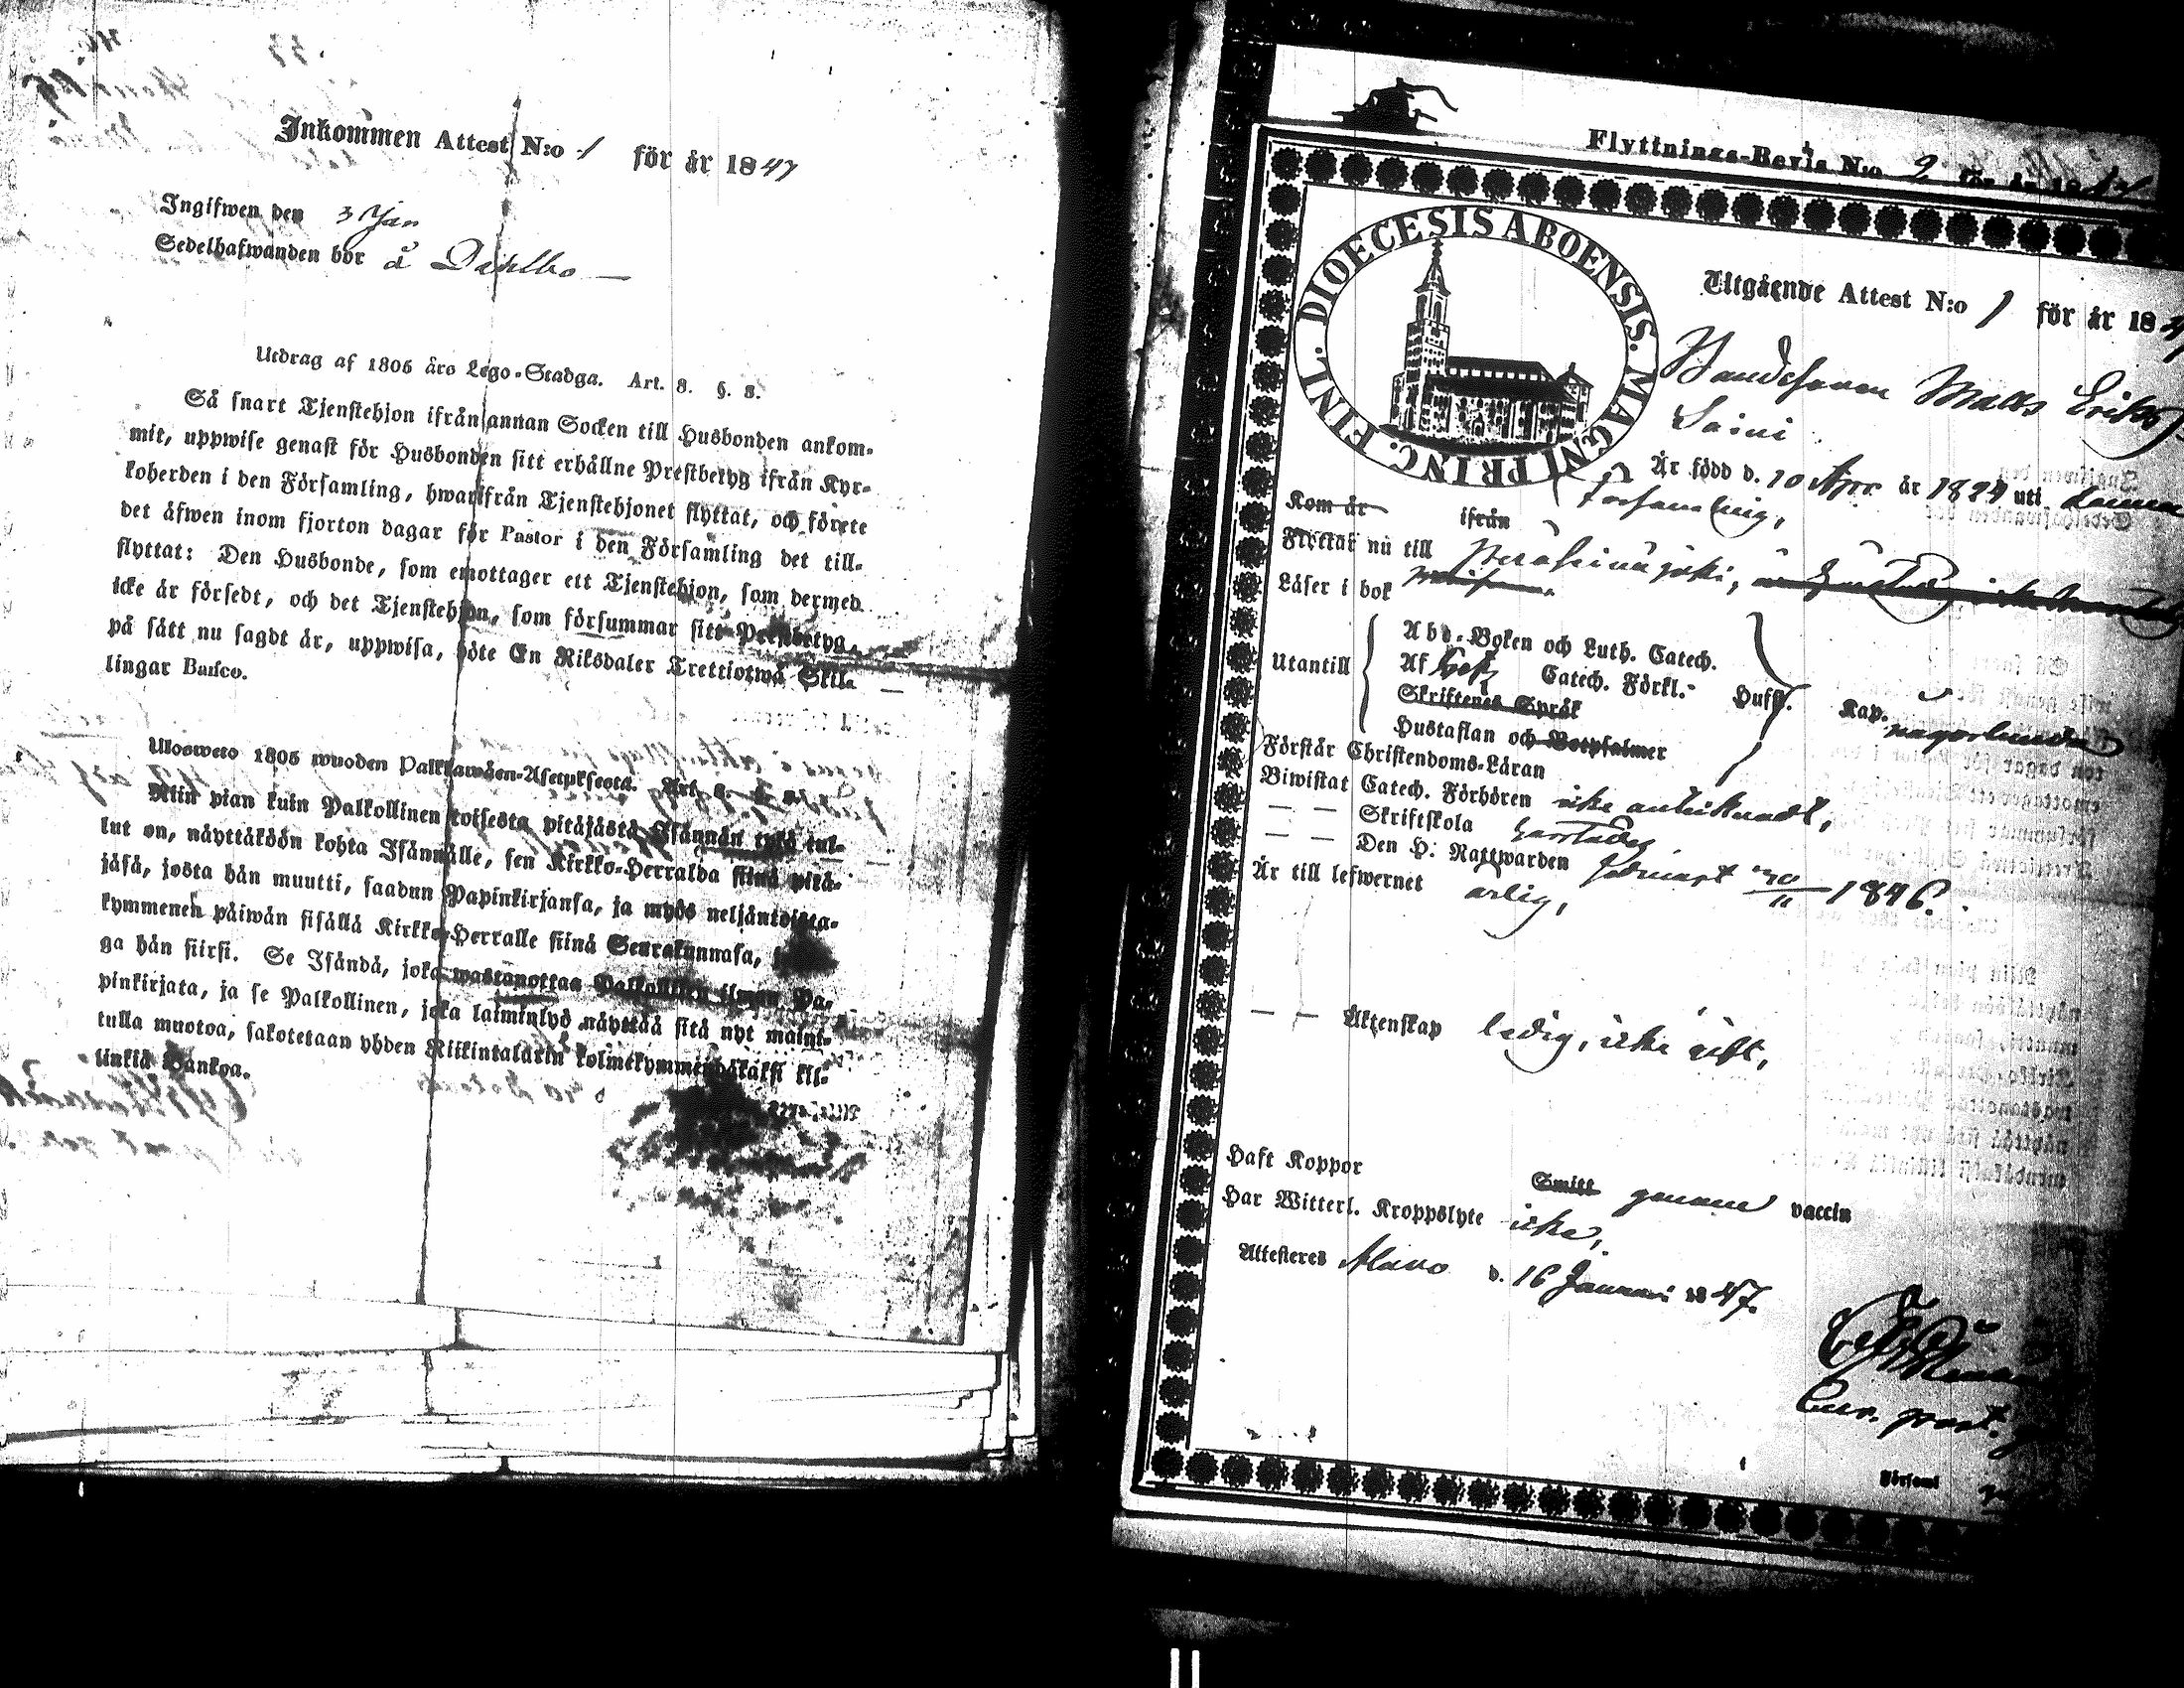 Inkommen Attest N:o 1 för år 1847
Ingifwen den 3 Jan
Sedelhafwanden bor å Dahlbo
Utdrag af 1805 års Lego-Stadga. Art. 8. §. 8.
Så snart Tjenstehjon ifrån annan Socken till Husbonden ankom-
mit, uppwise genast för Husbonden sitt erhållne Prestbetyg ifrån Kyr-
koherden i den Församling, hwarifrån Tjenstehjonet flyttat, och förete
det äfwen inom fjorton dagar för Pastor i den Församling det till-
flyttat: Den Husbonde, som emottager ett Tjenstehjon, som dermed
icke är försedt, och det Tjenstehjon, som försummar sitt Prestbetyg,
på sätt nu sagdt är, uppwisa, böte En Riksdaler Trettiotwå Skil-
lingar Banco.
Ulosweto 1805 wuoden Palkkawäen-Asetuksesta. Art. 8. §. 8.
Niin pian kuin Palkollinen toisesta pitäjästä Isännän tykö tul-
lut on, näyttäköön kohta Isännälle, sen Kirkko-Herralda siinä pitä-
jäsä, josta hän muutti, saadun Papinkirjansa, ja myös neljäntoista-
kymmenen päiwän sisällä Kirkko-Herralle siinä Seurakunnasa,
ga hän siirsi. Se Isändä, joka wastanottaa Palkollisen ilman Pa-
pinkirjata, ja se Palkollinen, joka laiminlyö näyttää sitä nyt mainit-
tulla muotoa, sakotetaan yhden Riikintalarin kolmekymmendäkaksi kil-
linkiä Bankoa.
Flyttnings-Bevis N:o 2 för år 18
DIOECESIS ABOENSIS. MAGNI PRINC. FINL.
Utgående Attest N:o 1 för år 184
Bandesonen Matts Eriks
Saini
Är född d. 10 Apr. år 1824 uti
Församling,
Kom år ifrån
Flyttar nu till Peräseinäjoki,
Läser i bok
Utantill
Abd-Boken och Luth. Catech.
Af Catech. Förkl.
Skriftenes Språk
Hustaflan och Botpsalmer
Husf. Kap. någorlunda
Förstår Christendoms-Läran
Biwistat Catech. Förhören icke antecknadt,
— — Skriftskola
— — Den H. Nattwarden sednast 30/11 1846.
Är till lefwernet ärlig,
— — Äktenskap ledig, icke gift,
Haft Koppor Smitt genom vaccin
Har Witterl. Kroppslyte icke,
Attesteres Alavo d. 16 Januari 1847.
Församl